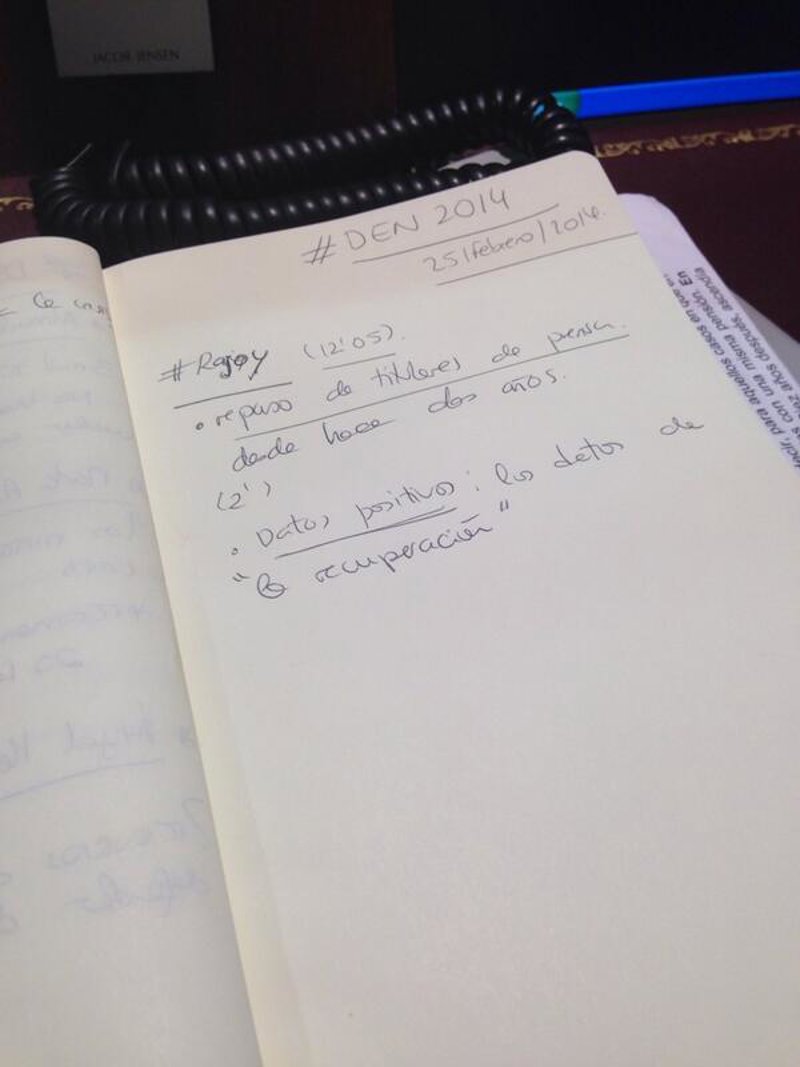 JACOB JENSEN
#DEN 2014
25/febrero/2014.
#Rajoy (12'05).
• repaso de titulares de prensa.
desde hace dos años.
(2')
• Datos positivos: los datos de
"la recuperación"
ecir, para aquellos casos en que e
s con una misma pensión. En
ez años después, ascendía